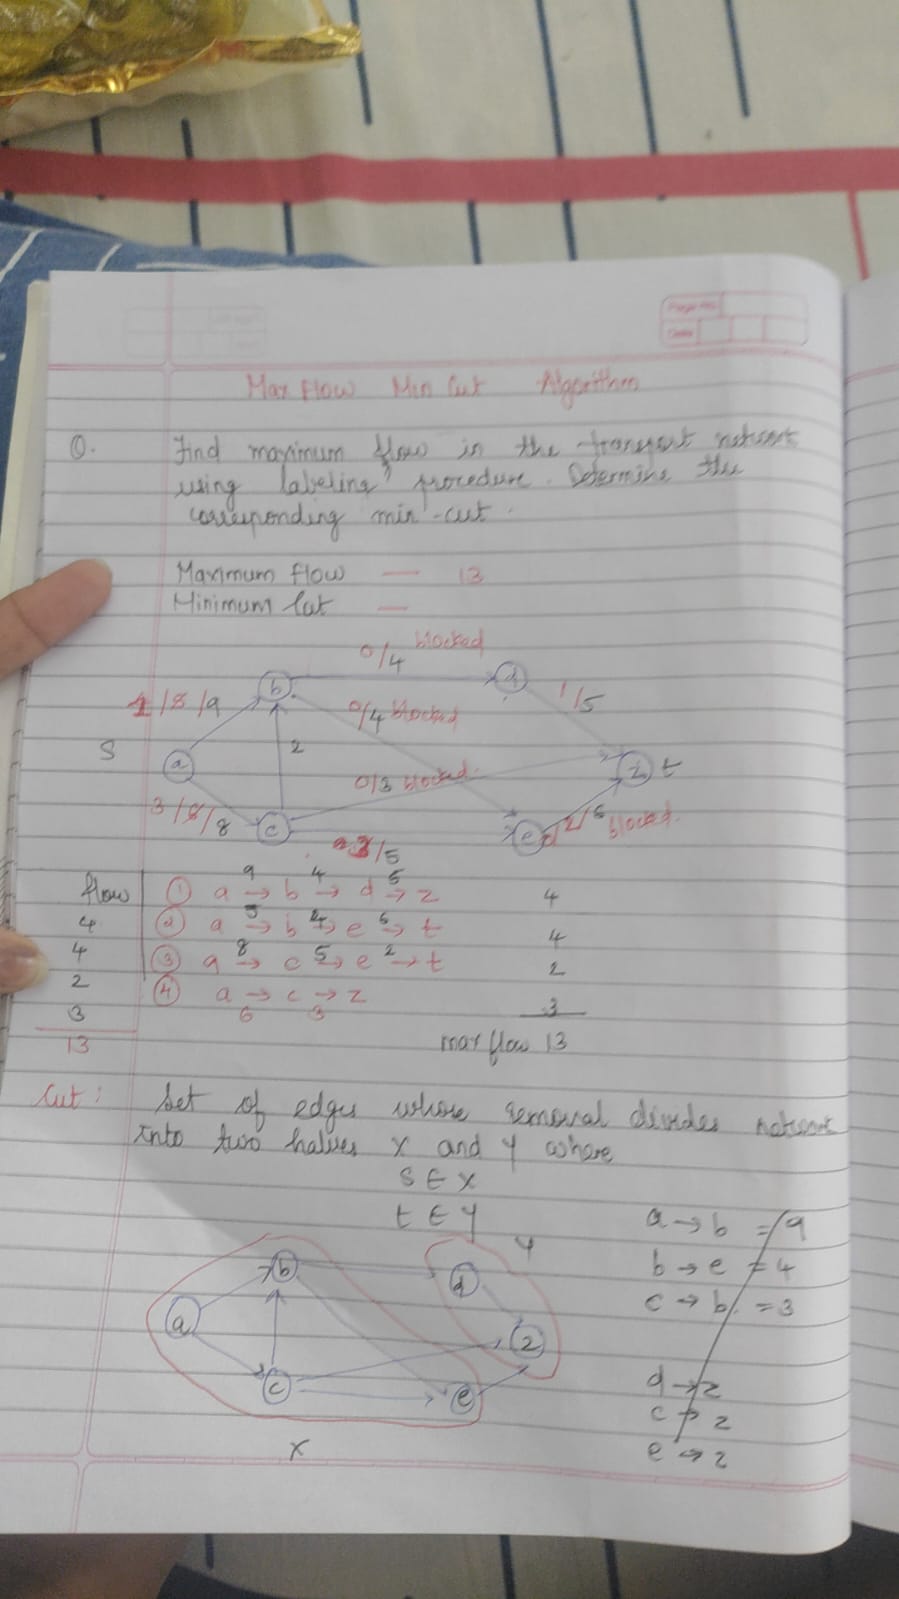 Page No.
Date
Max Flow Min Cut Algorithm
Q. Find maximum flow in the transport network
using labeling procedure. Determine the
corresponding min-cut.
Maximum flow — 13
Minimum Cut —
0/4 blocked
b
d
1/8/9
0/4 blocked
1/5
S
a
2
z t
0/3 blocked
3/8/8
c
e
2/6 blocked.
3/5
flow
① a →9 b →4 d →5 z 4
4 ② a →5 b →4 e →6 t 4
4 ③ a →8 c →5 e →2 t 2
2 ④ a → c → z
3 6 3 3
13 max flow 13
Cut: Set of edges whose removal divides network
into two halves X and Y where
S ∈ X
t ∈ Y
a → b = 9
b → e = 4
c → b = 3
d → z
c → z
e → z
Y
b
d
a
z
c
e
X